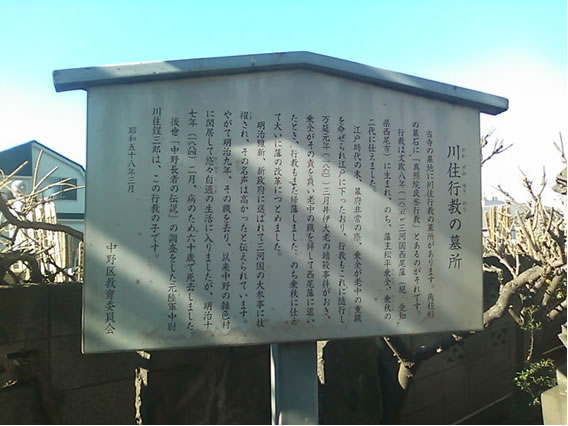 川住行教の墓所
当寺の墓地に川住行教の墓所があります。角柱形
の墓石に「真照院殷誉行教」とあるのがそれです。
行教は文政八年(一八二五)三河国西尾藩(現、愛知
県西尾市)に生まれ、のち、藩主松平乗全、乗秩の
二代に仕えました。
江戸時代の末、幕府非常の際、乗全が老中の重職
を命ぜられ江戸に下ったおり、行教もこれに随行し、
万延元年(一八六〇)三月井伊大老の暗殺事件がおき、
乗全がその責を負い老中の職を辞して西尾藩に退い
たとき、行教もまた帰藩しました。のち乗秩に仕え
て大いに藩の改革につとめました。
明治維新、新政府に選ばれて三河国の大参事に抜
擢され、その名声は高かったと伝えられています。
やがて明治九年、その職を去り、以来中野の雑色村
に閑居して悠々自適の生活に入りましたが、明治十
七年(一八八四)二月、病のため六十歳で死去しました。
後世「中野長者の伝説」の調査をした元陸軍中尉
川住鋥三郎は、この行教の子です。
昭和五十八年三月
中野区教育委員会